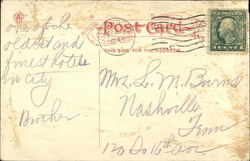 Post Card
THIS SIDE FOR THE ADDRESS
one of the
oldest and
finest hotels
in city
Brother
Mr. L. M. Burns
Nashville
Tenn
120 So 16th ave